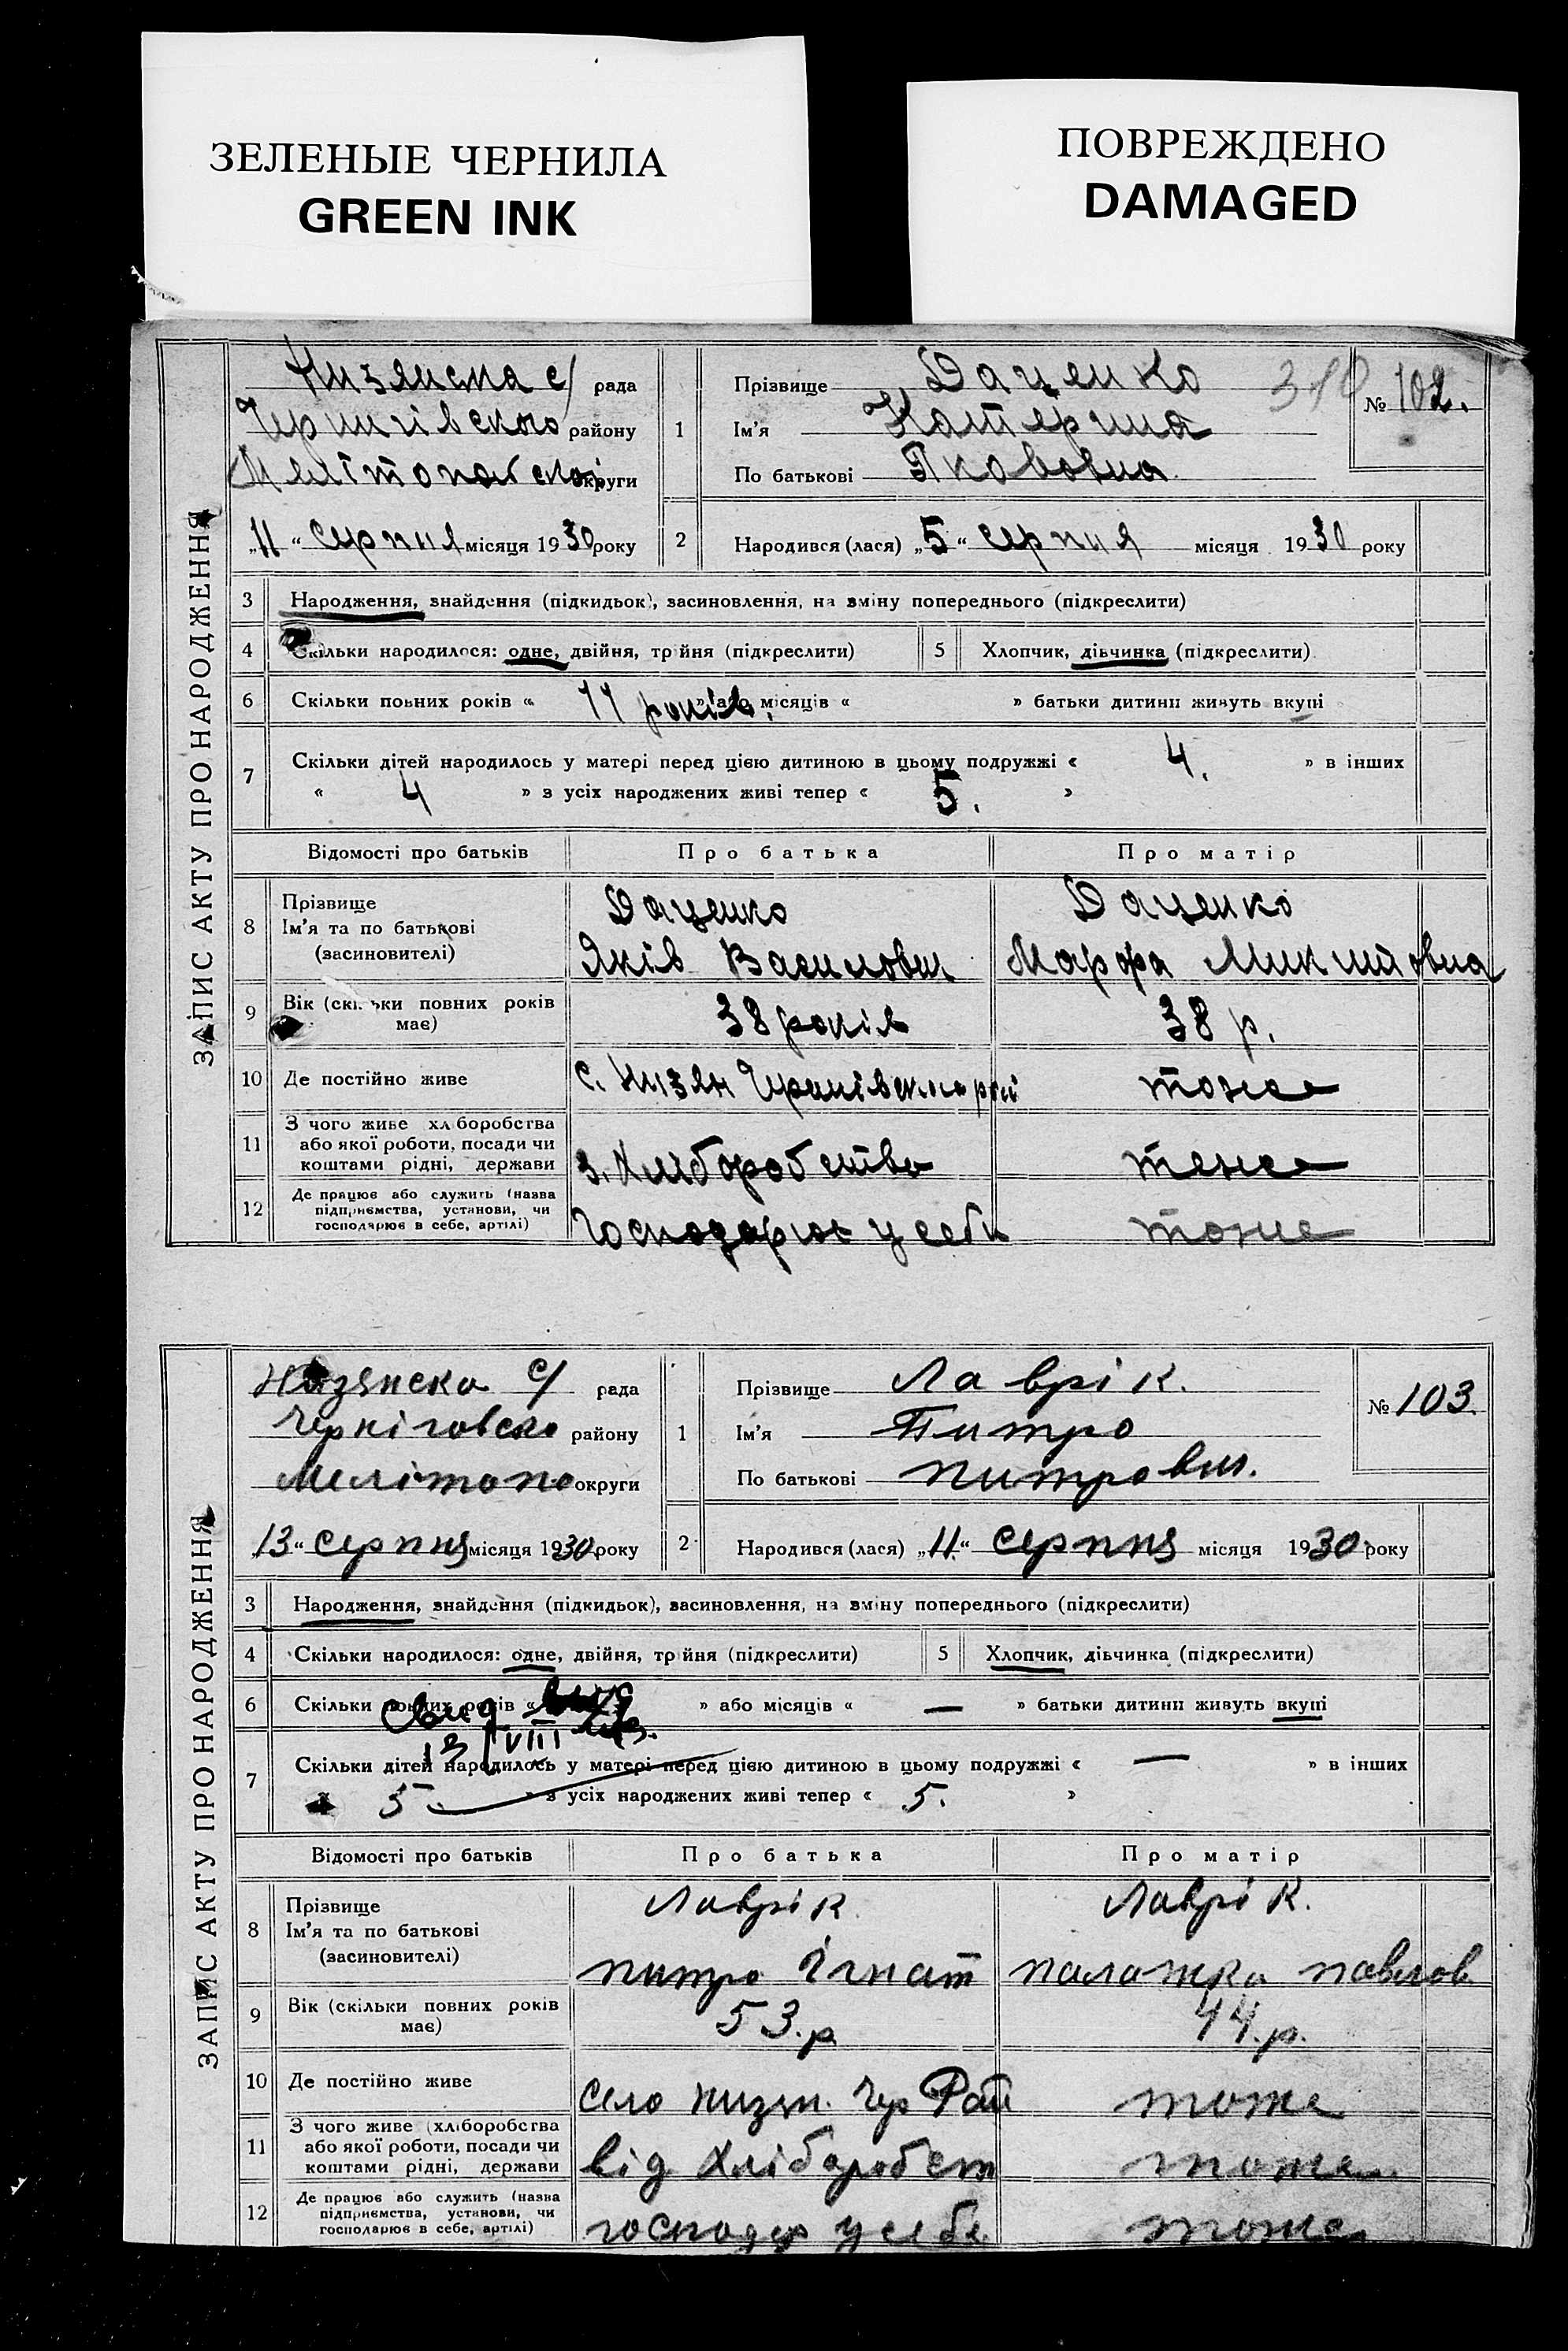 ЗЕЛЕНЫЕ ЧЕРНИЛА
GREEN INK
ПОВРЕЖДЕНО
DAMAGED
ЗАПИС АКТУ ПРО НАРОДЖЕННЯ
Низянська с/ рада
Чернигівського району
Мелітопольської округи
„11“ серпня місяця 1930 року
1
Прізвище Даценко
310
№ 102.
Ім'я Катерина
По батькові Якововна
2
Народився (лася) „5“ серпня місяця 1930 року
3 Народження, знайдення (підкидьок), засиновлення, на зміну попереднього (підкреслити)
4 Скільки народилося: одне, двійня, тройня (підкреслити) 5 Хлопчик, дівчинка (підкреслити)
6 Скільки повних років « 11 років. » або місяців « » батьки дитини живуть вкупі
7 Скільки дітей народилось у матері перед цією дитиною в цьому подружжі « 4. » в інших
« 4 » з усіх народжених живі тепер « 5. »
Відомості про батьків Про батька Про матір
8 Прізвище Даценко Даценко
Ім'я та по батькові
(засиновителі) Яків Василович Марфа
9 Вік (скільки повних років має) 38 років 38 р.
10 Де постійно живе с. Низян тоже
11 З чого живе хліборобства
або якої роботи, посади чи
коштами рідні, держави з. Хліборобства тоже
12 Де працює або служить (назва
підприємства, установи, чи
господарює в себе, артілі) Господарює у себе тоже
ЗАПИС АКТУ ПРО НАРОДЖЕННЯ
Низянска с/ рада
Черніговско району
Мелітопо округи
„13“ серпня місяця 1930 року
1
Прізвище Лаврік.
№ 103.
Ім'я Питро
По батькові Питрович.
2
Народився (лася) „11.“ серпня місяця 1930 року
3 Народження, знайдення (підкидьок), засиновлення, на зміну попереднього (підкреслити)
4 Скільки народилося: одне, двійня, тройня (підкреслити) 5 Хлопчик, дівчинка (підкреслити)
6 Скільки повних років « » або місяців « — » батьки дитини живуть вкупі
13/VIII
7 Скільки дітей народилось у матері перед цією дитиною в цьому подружжі « — » в інших
« 5. » з усіх народжених живі тепер « 5. »
Відомості про батьків Про батька Про матір
8 Прізвище Лаврік Лаврік.
Ім'я та по батькові
(засиновителі) питро Ігнат палажка павлов
9 Вік (скільки повних років має) 53.р 44.р.
10 Де постійно живе село низян. Чер Рай тоже
11 З чого живе (хліборобства
або якої роботи, посади чи
коштами рідні, держави від Хліборобст тоже
12 Де працює або служить (назва
підприємства, установи, чи
господарює в себе, артілі) господар у себе тоже